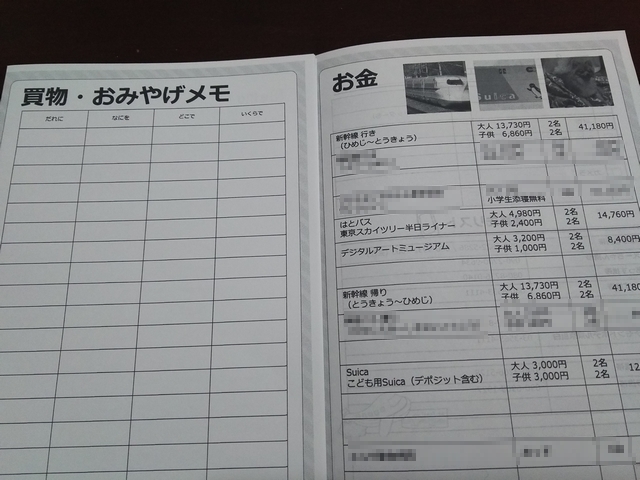 買物・おみやげメモ
だれに なにを どこで いくらで
お金
Suica
新幹線 行き 大人 13,730円 2名 41,180円
(ひめじ～とうきょう) 子供 6,860円 2名
小学生添寝無料
はとバス 大人 4,980円 2名 14,760円
東京スカイツリー半日ライナー 子供 2,400円 2名
デジタルアートミュージアム 大人 3,200円 2名 8,400円
子供 1,000円 2名
新幹線 帰り 大人 13,730円 2名 41,180
(とうきょう～ひめじ) 子供 6,860円 2名
Suica 大人 3,000円 2名 12
こども用Suica(デポジット含む) 子供 3,000円 2名